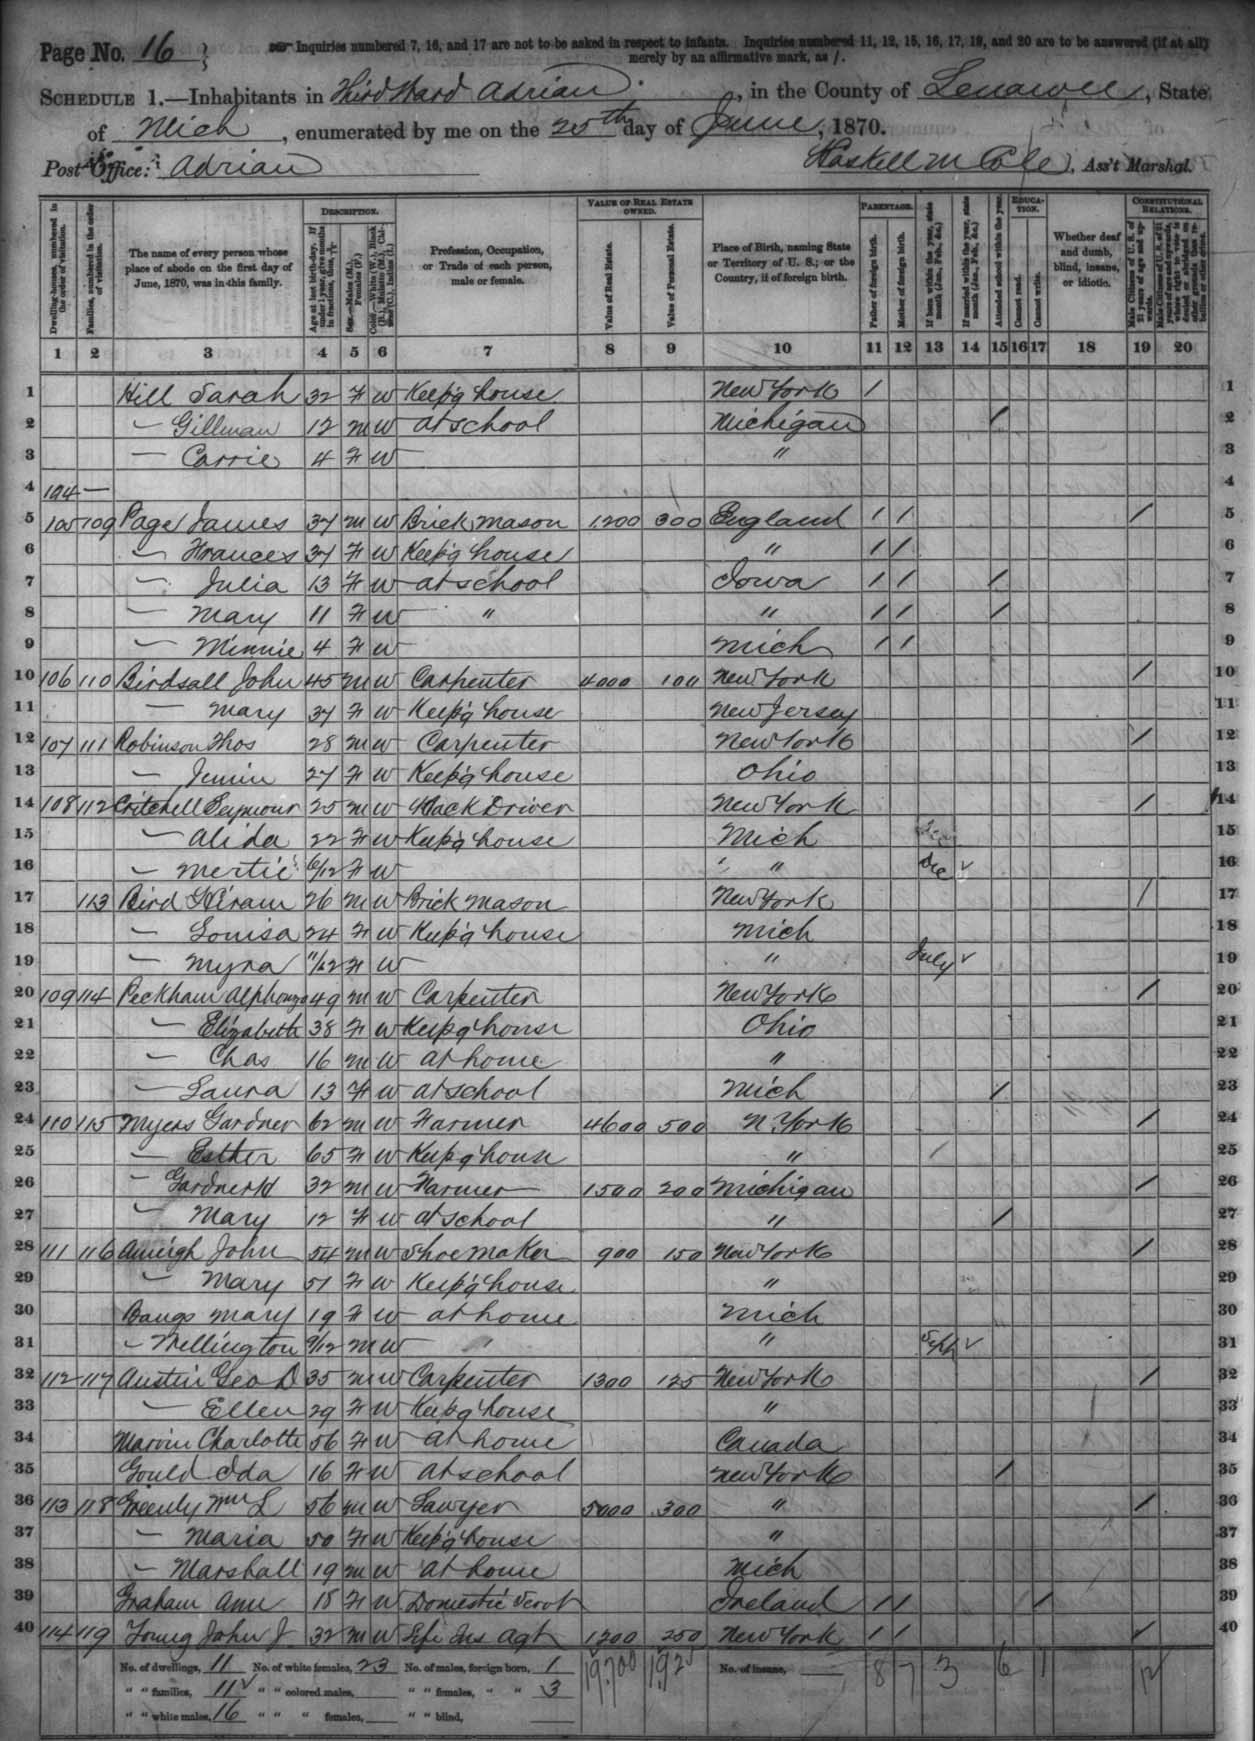 Page No. 16
Inquiries numbered 7, 16, and 17 are not to be asked in respect to infants. Inquiries numbered 11, 12, 15, 16, 17, 19, and 20 are to be answered (if at all)
merely by an affirmative mark, as /.
SCHEDULE 1.—Inhabitants in Third Ward Adrian, in the County of Lenawee, State
of Mich, enumerated by me on the 25th day of June, 1870.
Post Office: Adrian Haskell M Cole, Ass't Marshal.
Dwelling-houses, numbered in the order of visitation.
Families, numbered in the order of visitation.
The name of every person whose place of abode on the first day of June, 1870, was in this family.
DESCRIPTION.
Age at last birth-day. If under 1 year, give months in fractions, thus, 3/12
Sex.—Males (M.), Females (F.)
Color.—White (W.), Black (B.), Mulatto (M.), Chinese (C.), Indian (I.)
Profession, Occupation, or Trade of each person, male or female.
VALUE OF REAL ESTATE OWNED.
Value of Real Estate.
Value of Personal Estate.
Place of Birth, naming State or Territory of U. S.; or the Country, if of foreign birth.
PARENTAGE.
Father of foreign birth.
Mother of foreign birth.
If born within the year, state month (Jan., Feb., &c.)
If married within the year, state month (Jan., Feb., &c.)
EDUCATION.
Attended school within the year.
Cannot read.
Cannot write.
Whether deaf and dumb, blind, insane, or idiotic.
CONSTITUTIONAL RELATIONS.
Male Citizens of U. S. of 21 years of age and upwards.
Male Citizens of U. S. of 21 years of age and upwards, whose right to vote is denied or abridged on other grounds than rebellion or other crime.
1 2 3 4 5 6 7 8 9 10 11 12 13 14 15 16 17 18 19 20
1 Hill Sarah 32 F W Keep'g house New York / 1
2 — Gillman 12 M W At school Michigan / 2
3 — Carrie 4 F W " 3
4 104 — 4
5 105 109 Page James 37 M W Brick Mason 1200 300 England / / / 5
6 — Frances 37 F W Keep'g house " / / 6
7 — Julia 13 F W At school Iowa / / / 7
8 — Mary 11 F W " " / / / 8
9 — Minnie 4 F W Mich / / 9
10 106 110 Birdsall John 45 M W Carpenter 4000 100 New York / 10
11 — Mary 37 F W Keep'g house New Jersey 11
12 107 111 Robinson Thos 28 M W Carpenter New York / 12
13 — 27 F W Keep'g house Ohio 13
14 108 112 Critchell Seymour 25 M W Hack Driver New York / 14
15 — Alida 22 F W Keep'g house Mich 15
16 — Mertie 6/12 F W " Dec 16
17 113 Bird Hiram 26 M W Brick Mason New York / 17
18 — Louisa 24 F W Keep'g house Mich 18
19 — Myra 11/12 F W " July 19
20 109 114 Peckham Alphonzo 49 M W Carpenter New York / 20
21 — Elizabeth 38 F W Keep'g house Ohio 21
22 — Chas 16 M W At home " 22
23 — Laura 13 F W At school Mich / 23
24 110 115 Myers Gardner 62 M W Farmer 4600 500 N. York / 24
25 — Esther 65 F W Keep'g house " 25
26 — Gardner H 32 M W Farmer 1500 200 Michigan / 26
27 — Mary 12 F W At school " / 27
28 111 116 Ameigh John 54 M W Shoe Maker 900 150 New York / 28
29 — Mary 51 F W Keep'g house " 29
30 Bangs Mary 19 F W At home Mich 30
31 — Wellington 9/12 M W " Sept 31
32 112 117 Austin Geo D 35 M W Carpenter 1300 125 New York / 32
33 — Ellen 29 F W Keep'g house " 33
34 Marvin Charlotte 56 F W At home Canada 34
35 Gould Ida 16 F W At school New York / 35
36 113 118 Greenly Wm L 56 M W Lawyer 5000 300 " / 36
37 — Maria 50 F W Keep'g house " 37
38 — Marshall 19 M W At home Mich 38
39 Graham Ann 18 F W Domestic Servt Ireland / / / 39
40 114 119 Young John J 32 M W Life Ins Agt 1200 250 New York / / / 40
No. of dwellings, 11 No. of white females, 23 No. of males, foreign born, 1 19,700 1,925 No. of insane, 8 7 3 6 1 12
" " families, 11 " " colored males, " " females, " " 3
" " white males, 16 " " " females, " " blind,